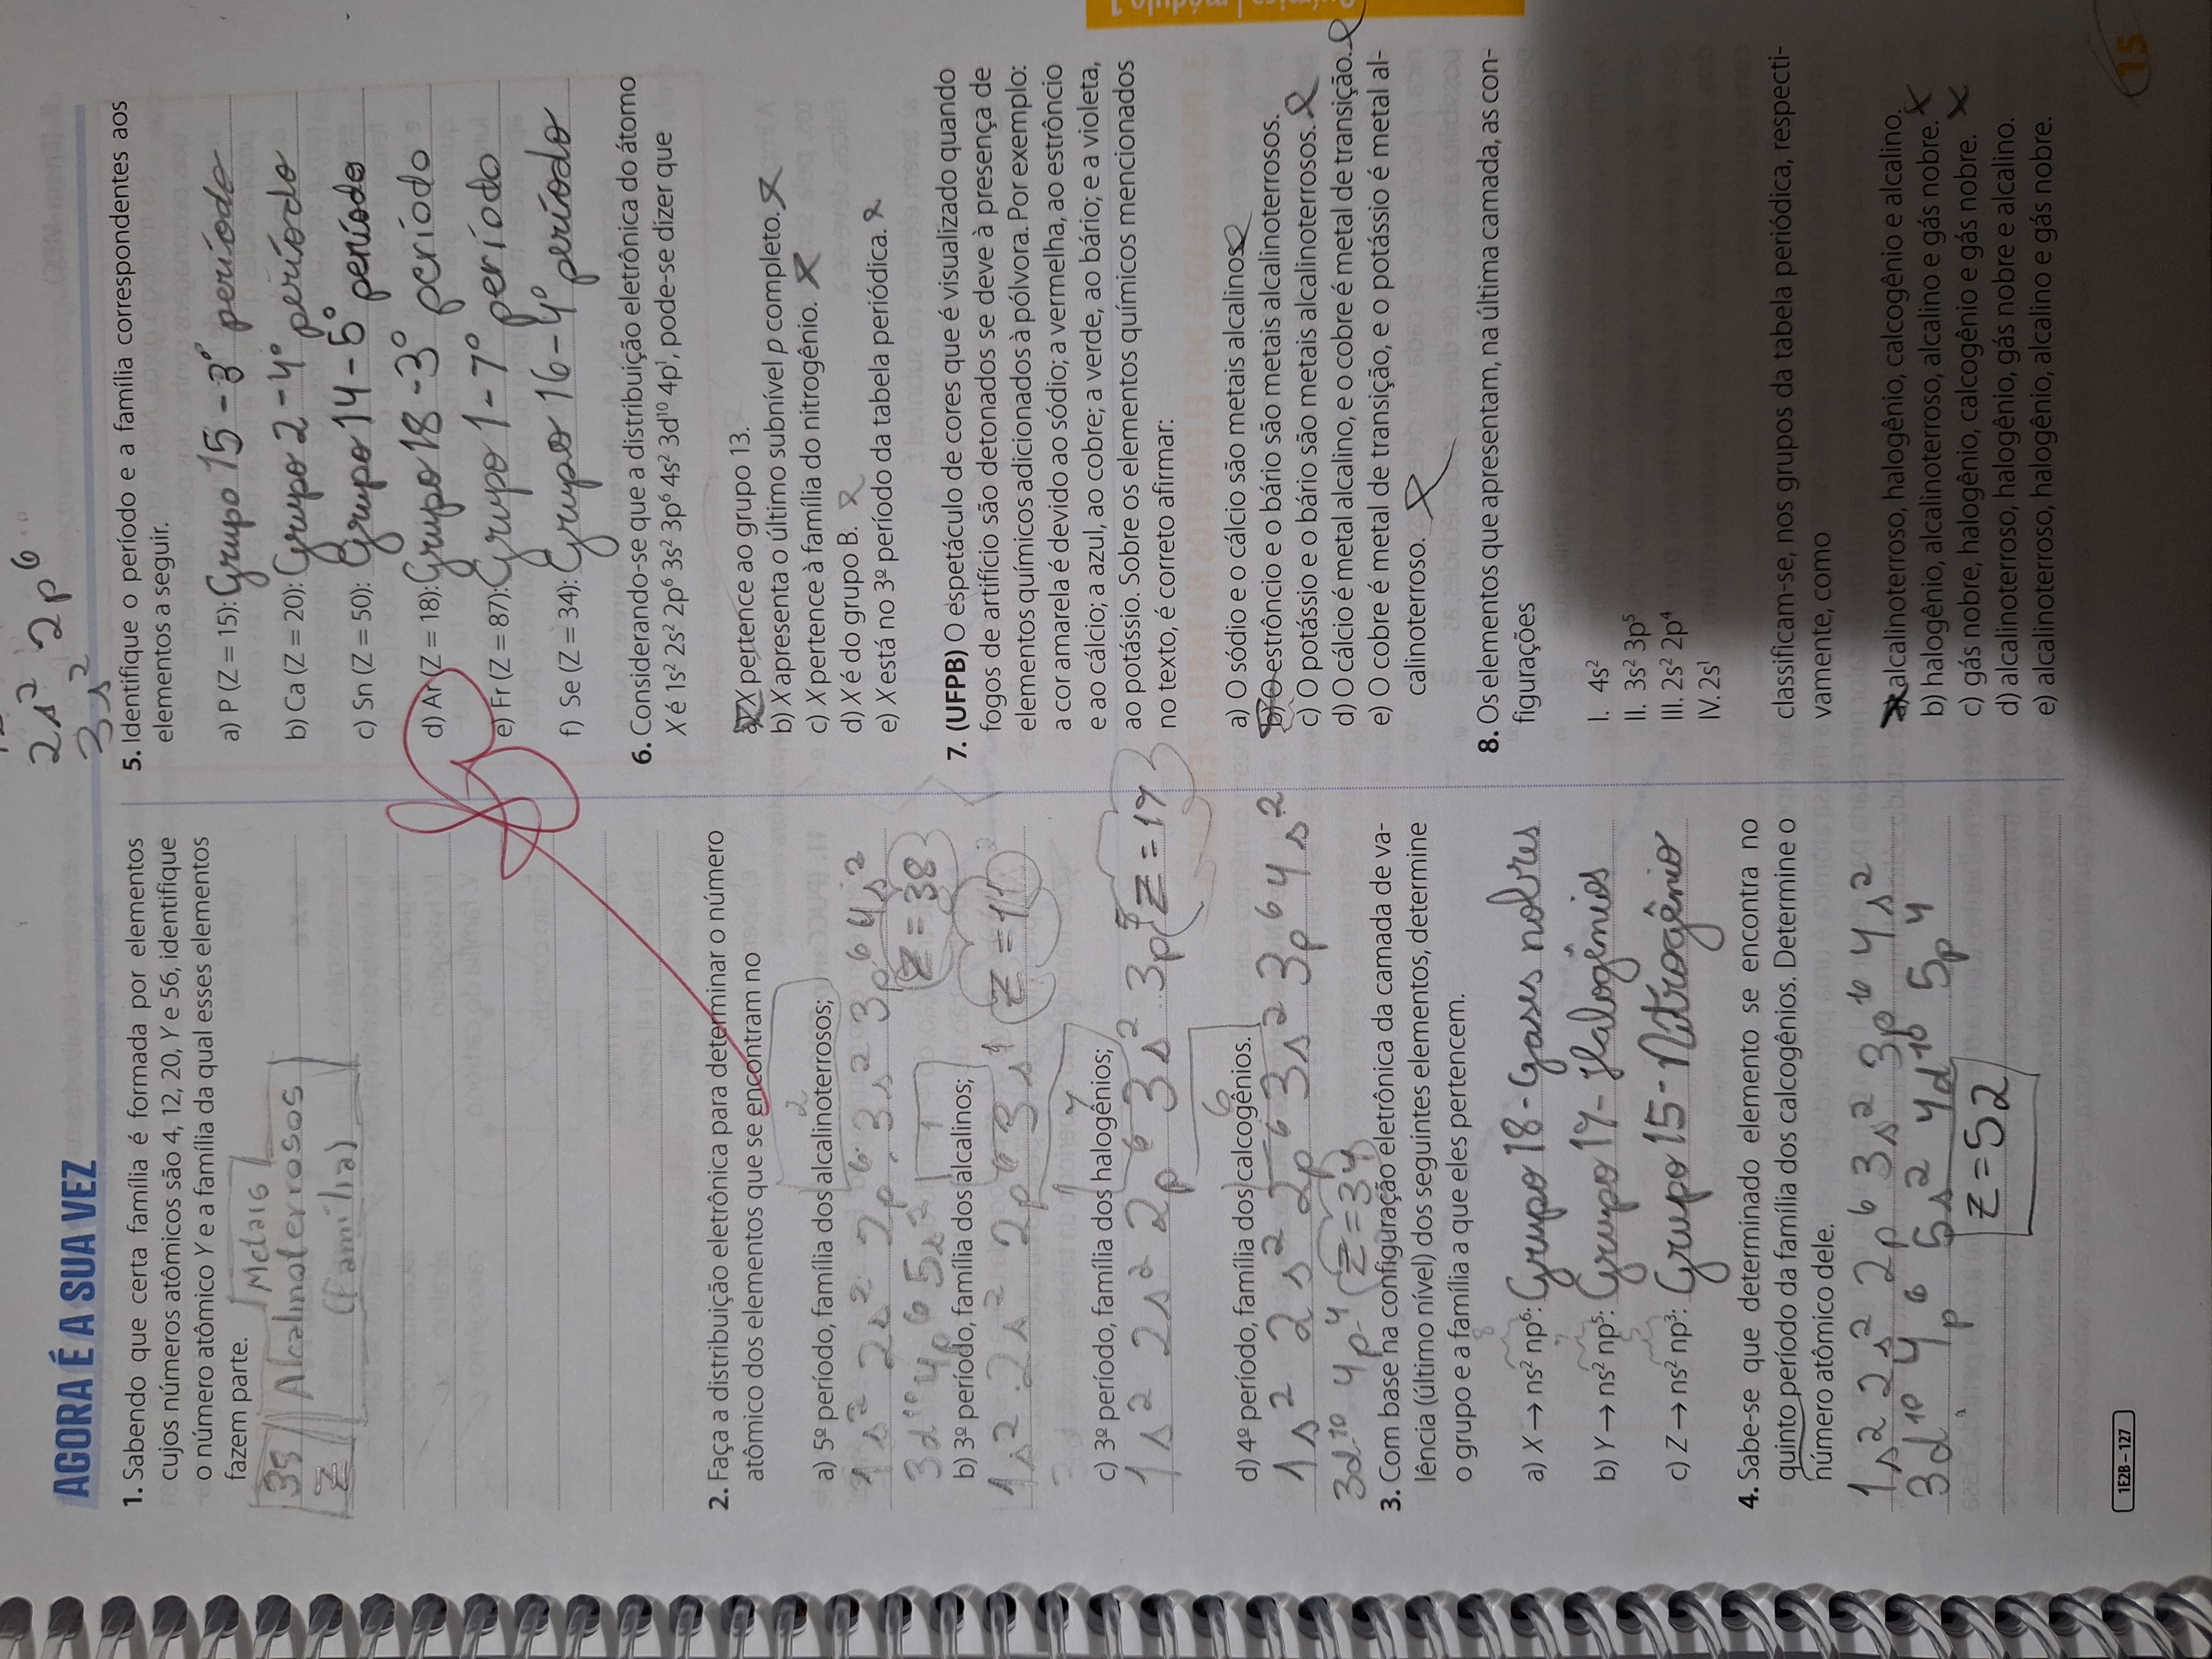 2s² 2p⁶
3s²
AGORA É A SUA VEZ
1. Sabendo que certa família é formada por elementos
cujos números atômicos são 4, 12, 20, Y e 56, identifique
o número atômico Y e a família da qual esses elementos
fazem parte.
Metais
38 Alcalinoterrosos
Z (Família)
2. Faça a distribuição eletrônica para determinar o número
atômico dos elementos que se encontram no
2
a) 5º período, família dos alcalinoterrosos;
1s² 2s² 2p⁶ 3s² 3p⁶ 4s²
3d¹⁰ 4p⁶ 5s² Z = 38
1
b) 3º período, família dos alcalinos;
1s² 2s² 2p⁶ 3s¹ Z = 11
7
c) 3º período, família dos halogênios;
1s² 2s² 2p⁶ 3s² 3p⁵ Z = 17
6
d) 4º período, família dos calcogênios.
1s² 2s² 2p⁶ 3s² 3p⁶ 4s²
3d¹⁰ 4p⁴ Z = 34
3. Com base na configuração eletrônica da camada de va-
lência (último nível) dos seguintes elementos, determine
o grupo e a família a que eles pertencem.
8
a) X → ns² np⁶: Grupo 18 - Gases nobres
7
b) Y → ns² np⁵: Grupo 17 - Halogênios
5
c) Z → ns² np³: Grupo 15 - Nitrogênio
4. Sabe-se que determinado elemento se encontra no
quinto período da família dos calcogênios. Determine o
número atômico dele.
1s² 2s² 2p⁶ 3s² 3p⁶ 4s²
3d¹⁰ 4p⁶ 5s² 4d¹⁰ 5p⁴
Z = 52
1E2B – 127
5. Identifique o período e a família correspondentes aos
elementos a seguir.
a) P (Z = 15): Grupo 15 - 3º período
b) Ca (Z = 20): Grupo 2 - 4º período
c) Sn (Z = 50): Grupo 14 - 5º período
d) Ar (Z = 18): Grupo 18 - 3º período
e) Fr (Z = 87): Grupo 1 - 7º período
f) Se (Z = 34): Grupo 16 - 4º período
6. Considerando-se que a distribuição eletrônica do átomo
X é 1s² 2s² 2p⁶ 3s² 3p⁶ 4s² 3d¹⁰ 4p¹, pode-se dizer que
a) X pertence ao grupo 13.
b) X apresenta o último subnível p completo.
c) X pertence à família do nitrogênio.
d) X é do grupo B.
e) X está no 3º período da tabela periódica.
7. (UFPB) O espetáculo de cores que é visualizado quando
fogos de artifício são detonados se deve à presença de
elementos químicos adicionados à pólvora. Por exemplo:
a cor amarela é devido ao sódio; a vermelha, ao estrôncio
e ao cálcio; a azul, ao cobre; a verde, ao bário; e a violeta,
ao potássio. Sobre os elementos químicos mencionados
no texto, é correto afirmar:
a) O sódio e o cálcio são metais alcalinos.
b) O estrôncio e o bário são metais alcalinoterrosos.
c) O potássio e o bário são metais alcalinoterrosos.
d) O cálcio é metal alcalino, e o cobre é metal de transição.
e) O cobre é metal de transição, e o potássio é metal al-
calinoterroso.
8. Os elementos que apresentam, na última camada, as con-
figurações
I. 4s²
II. 3s² 3p⁵
III. 2s² 2p⁴
IV. 2s¹
classificam-se, nos grupos da tabela periódica, respecti-
vamente, como
a) alcalinoterroso, halogênio, calcogênio e alcalino.
b) halogênio, alcalinoterroso, alcalino e gás nobre.
c) gás nobre, halogênio, calcogênio e gás nobre.
d) alcalinoterroso, halogênio, gás nobre e alcalino.
e) alcalinoterroso, halogênio, alcalino e gás nobre.
15